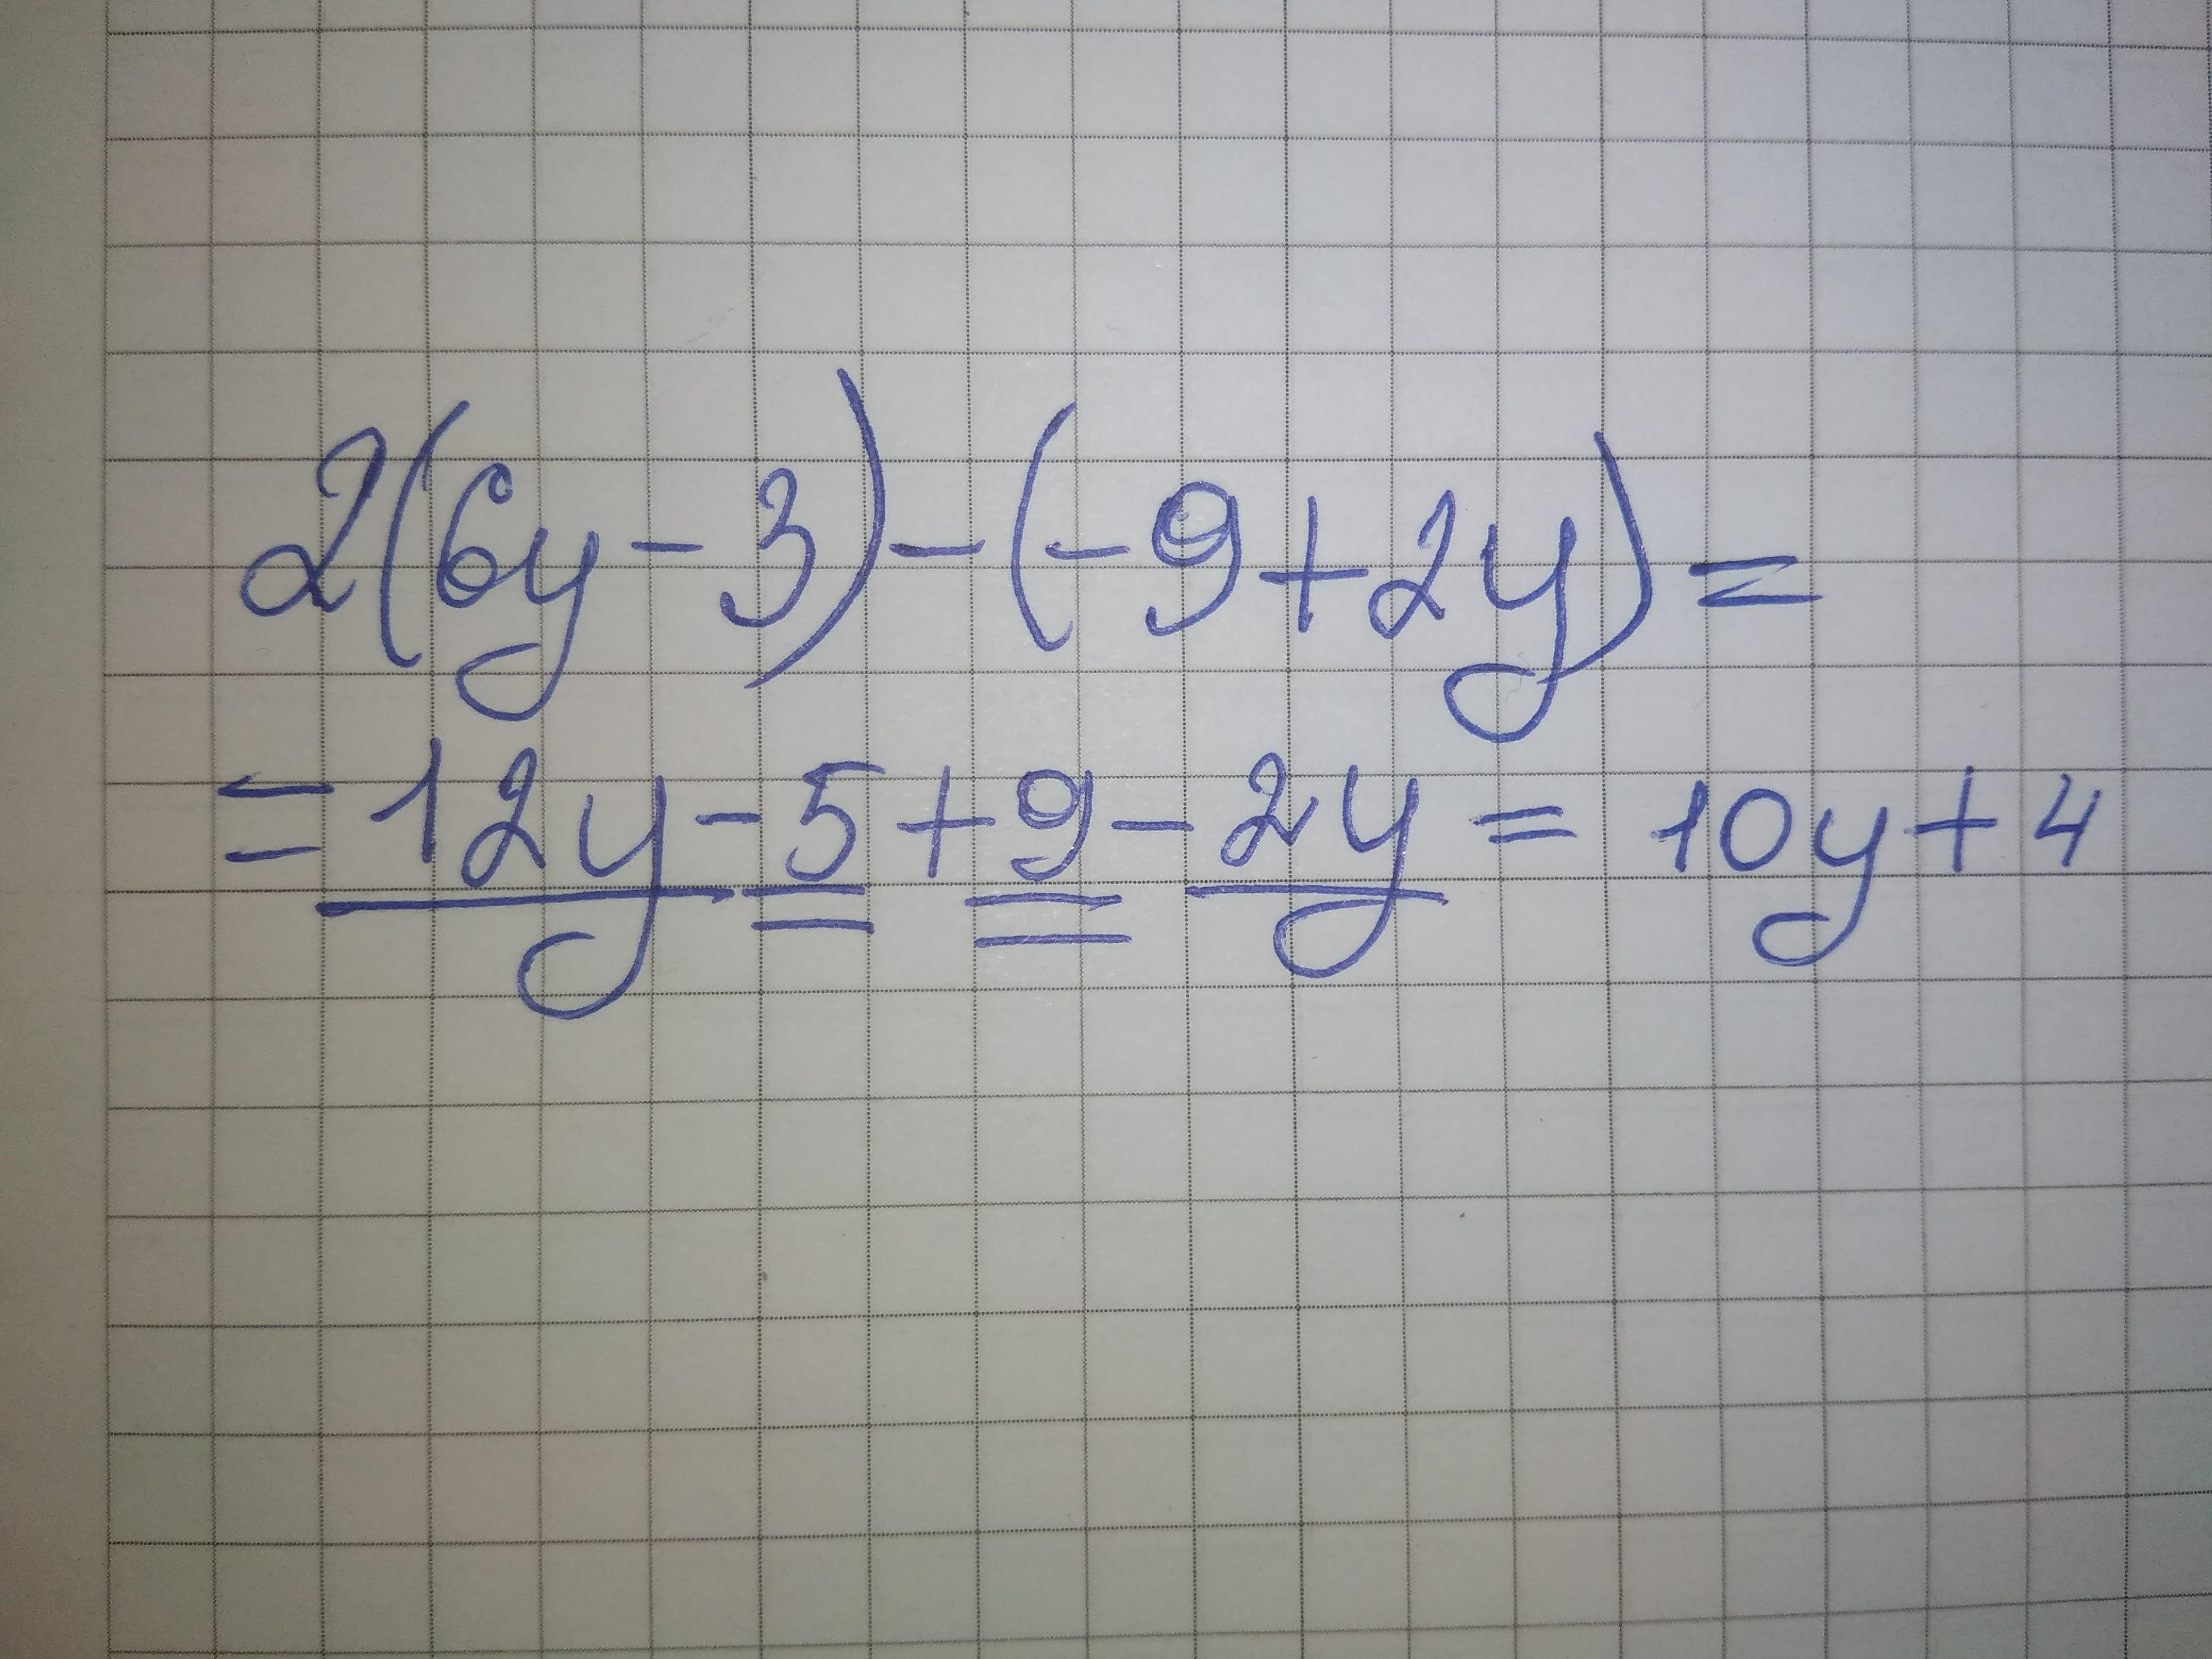 2(6y-3)-(-9+2y)=
=12y-5+9-2y=10y+4